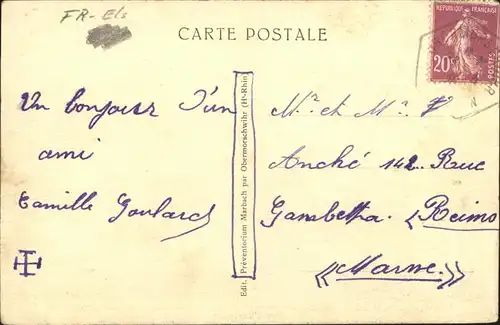 FR-Els
CARTE POSTALE
RÉPUBLIQUE FRANÇAISE
20c
POSTES
Un bonjour d'un
ami
Camille Goulard
Edit. Préventorium Marbach par Obermorschwihr (Ht-Rhin)
Mr et Me V
Anché 142 Rue
Gambetta. (Reims
《Marne.》